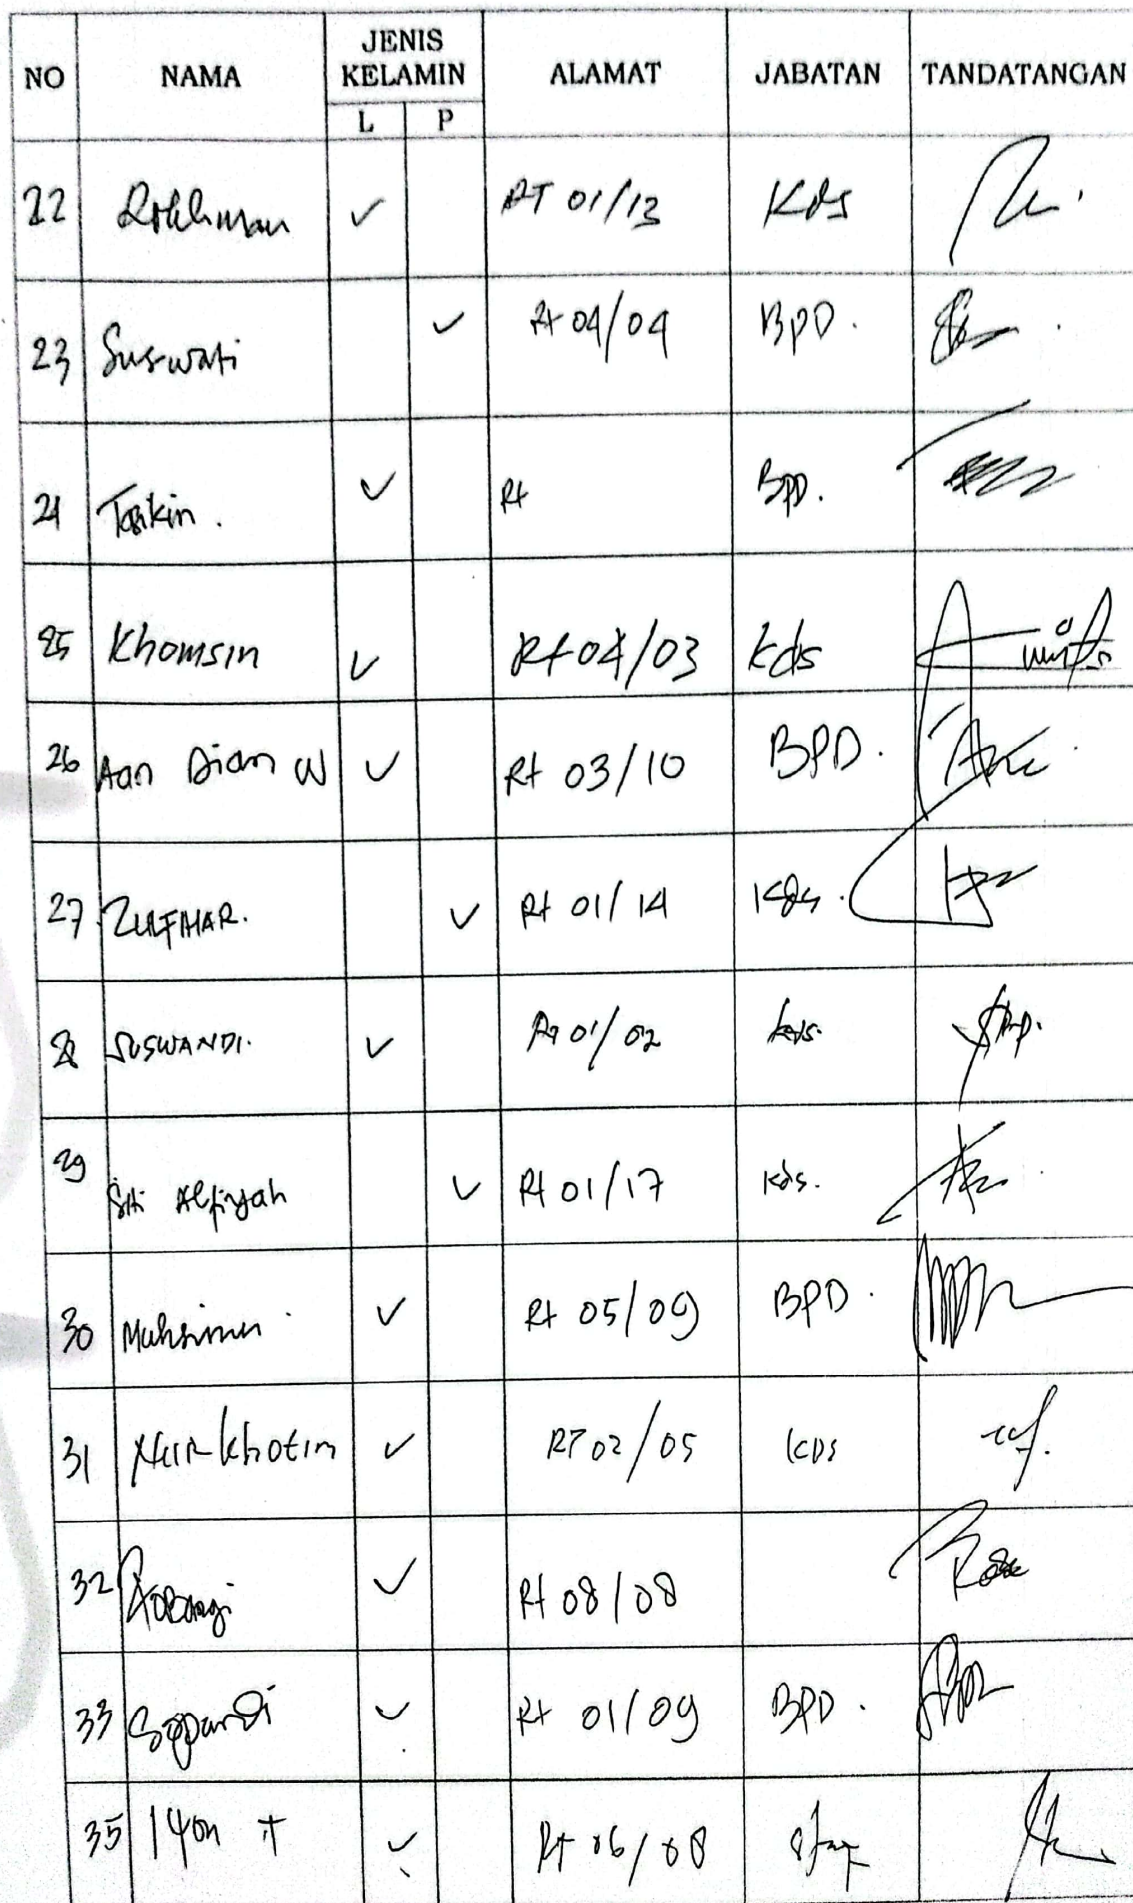 NO NAMA JENIS KELAMIN ALAMAT JABATAN TANDATANGAN
L P
22 Rokhman ✓ RT 01/13 Kds
23 Suswati ✓ Rt 04/04 BPD.
24 Taskin. ✓ Rt BPD.
25 Khomsin ✓ Rt 04/03 kds
26 Aan Dian W ✓ Rt 03/10 BPD.
27 ZULFAHAR. ✓ Rt 01/14 Kds.
28 SUSWANDI. ✓ Rt 01/02 kds.
29 Siti Alfiyah ✓ Rt 01/17 Kds.
30 ✓ Rt 05/09 BPD.
31 Nur-khotim ✓ RT 02/05 KDS
32 ✓ Rt 08/08
33 Sopandi ✓ Rt 01/09 BPD.
35 ✓ Rt 06/08 Staf